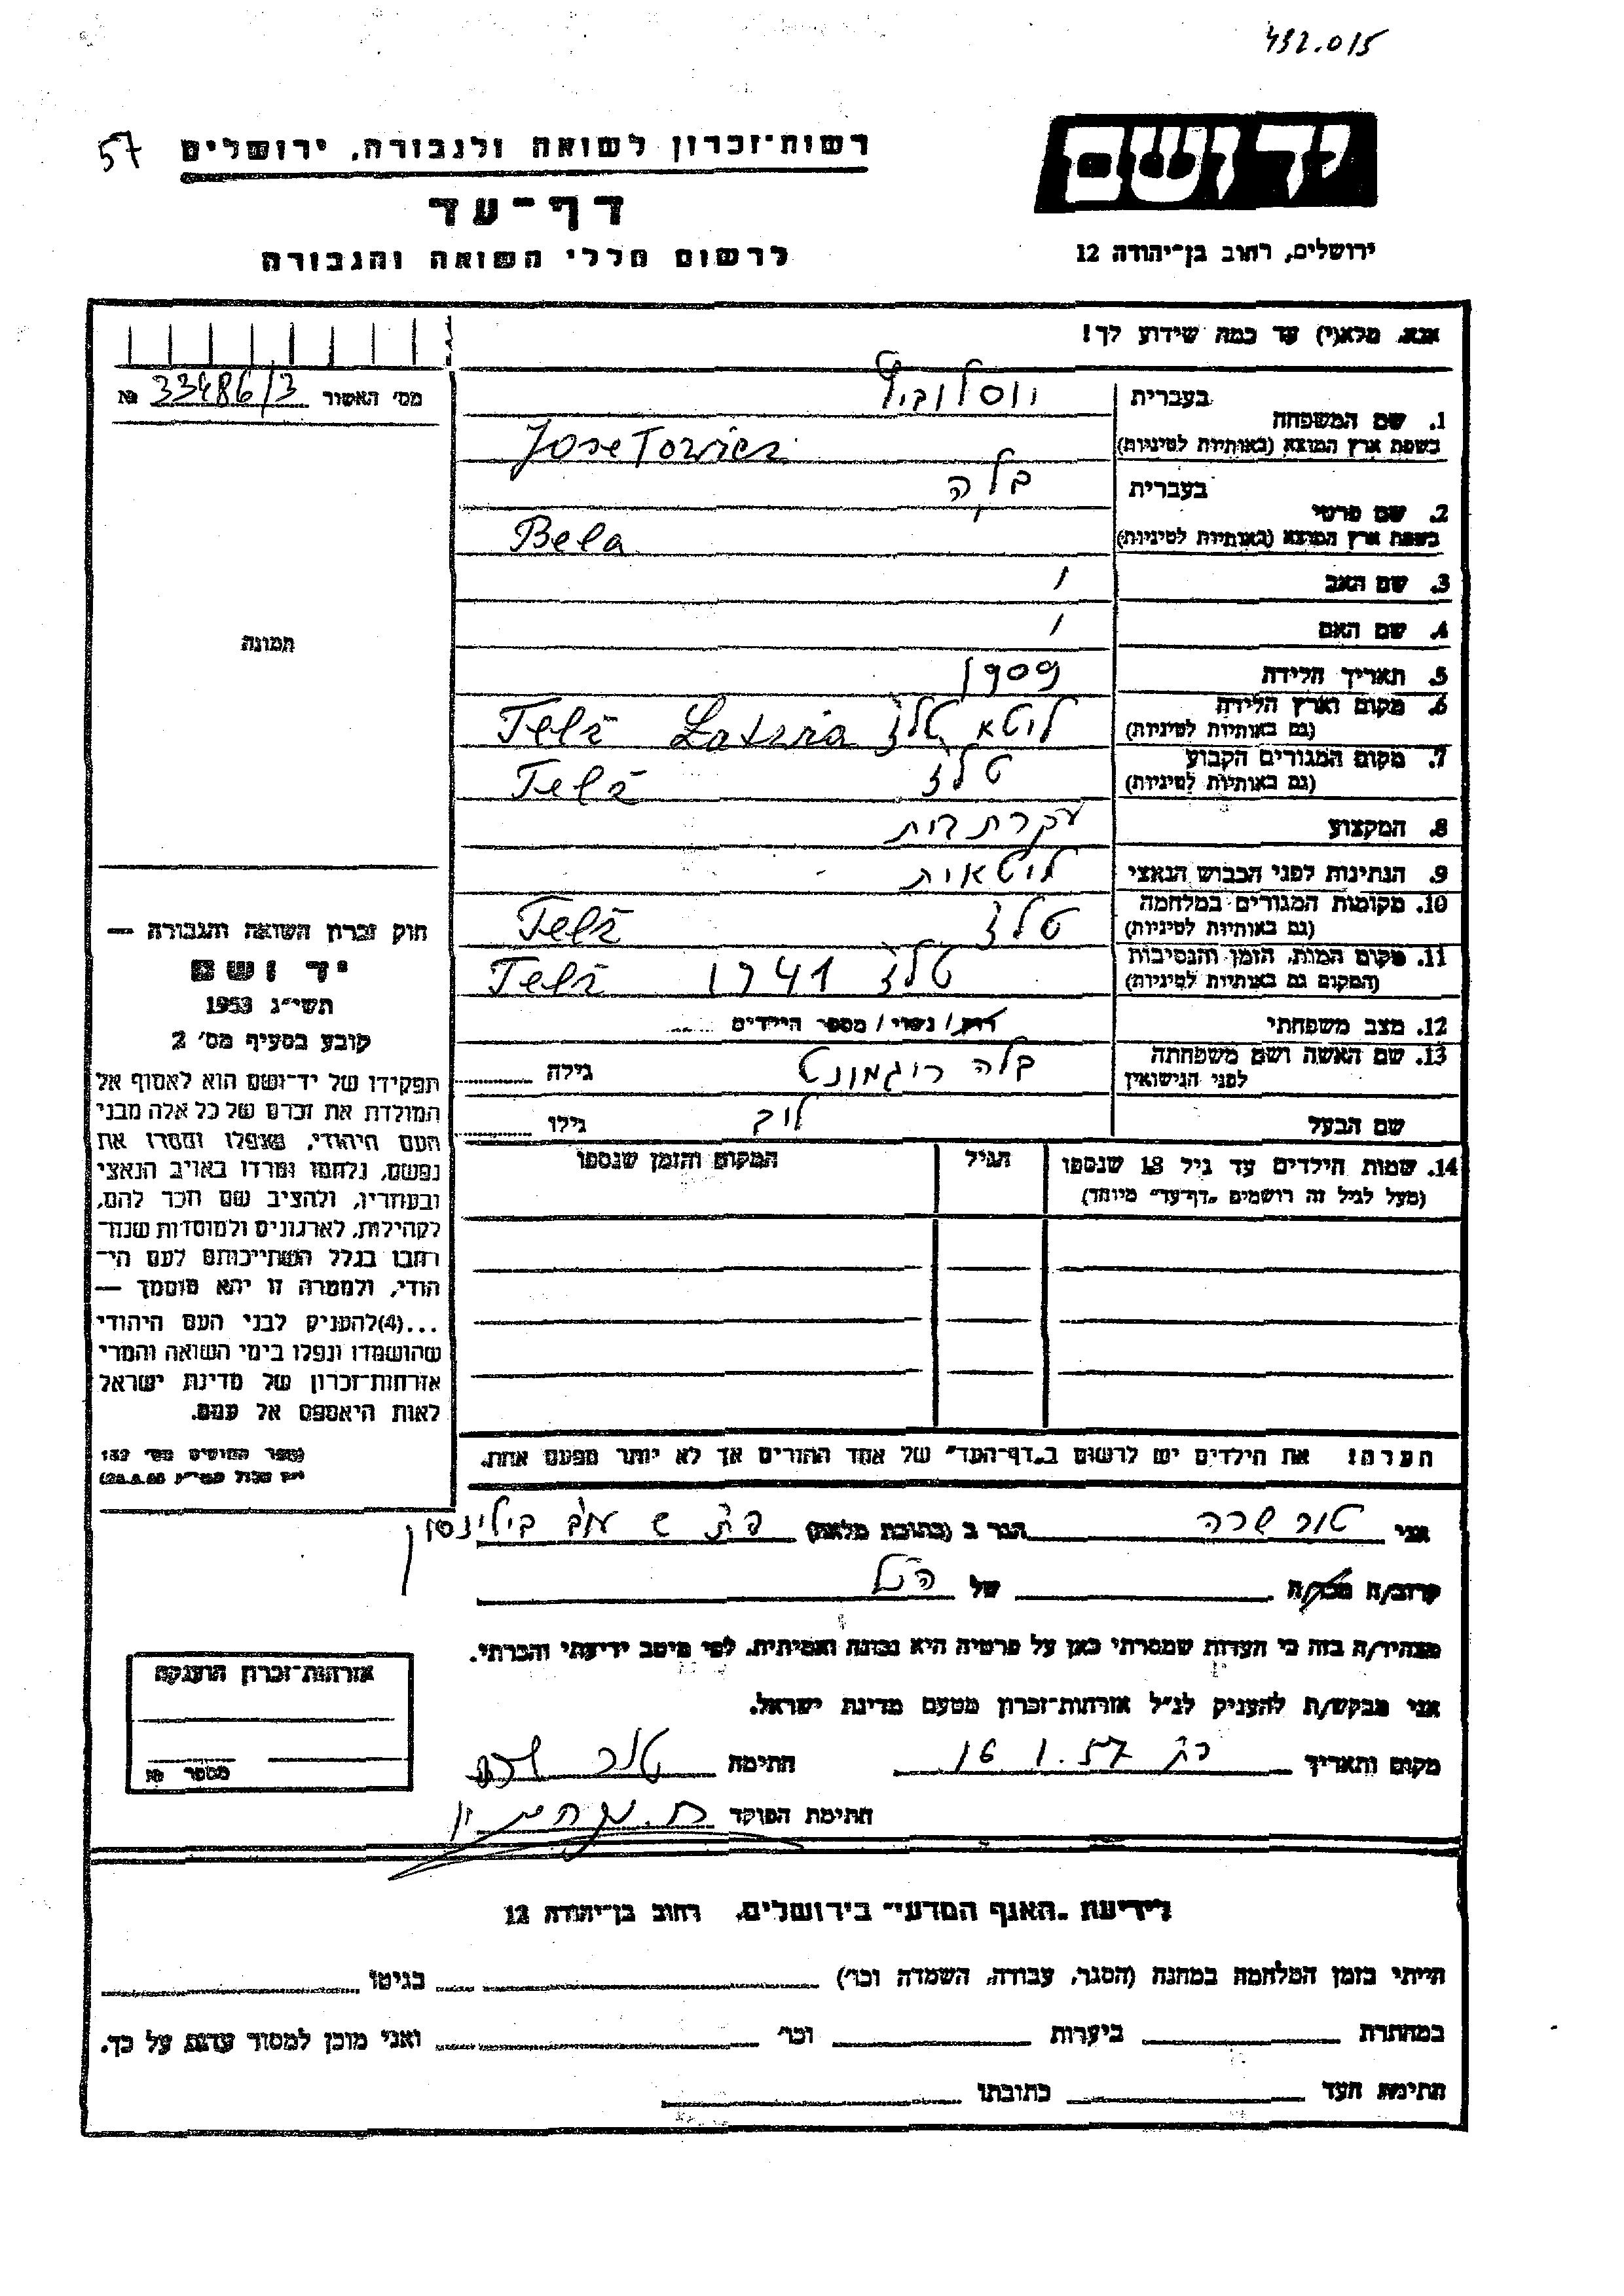 432.015
57
רשות־זכרון לשואה ולגבורה, ירושלים
יד ושם
דף־עד
לרשום חללי השואה והגבורה
ירושלים, רחוב בן־יהודה 12
אנא, מלא(י) עד כמה שידוע לך!
מס׳ האשור 33486/3 №
תמונה
1. שם המשפחה
בעברית יוסלוביץ
בשפת ארץ המוצא (באותיות לטיניות) Joselowicz
2. שם פרטי
בעברית בלה
בשפת ארץ המוצא (באותיות לטיניות) Bela
3. שם האב /
4. שם האם /
5. תאריך הלידה 1909
6. מקום וארץ הלידה ליטא טלז Telz
(גם באותיות לטיניות)
7. מקום המגורים הקבוע טלז Telz
(גם באותיות לטיניות)
8. המקצוע עקרת בית
9. הנתינות לפני הכבוש הנאצי ליטאית
10. מקומות המגורים במלחמה טלז Telz
(גם באותיות לטיניות)
11. מקום המות, הזמן והנסיבות טלז 1941 Telz
(המקום גם באותיות לטיניות)
12. מצב משפחתי רוק/ נשוי/ מספר הילדים
13. שם האשה ושם משפחתה בלה גילה
לפני הנישואין
שם הבעל גילו
14. שמות הילדים עד גיל 18 שנספו הגיל המקום והזמן שנספו
(מעל לגיל זה רושמים „דף־עד״ מיוחד)
הערה: את הילדים יש לרשום ב„דף־העד״ של אחד ההורים אך לא יותר מפעם אחת.
חוק זכרון השואה והגבורה —
יד ושם
תשי״ג 1953
קובע בסעיף מס׳ 2
תפקידו של יד־ושם הוא לאסוף אל
המולדת את זכרם של כל אלה מבני
העם היהודי, שנפלו ומסרו את
נפשם, נלחמו ומרדו באויב הנאצי
ובעוזריו, ולהציב שם וזכר להם,
לקהילות, לארגונים ולמוסדות שנח־
רבו בגלל השתייכותם לעם הי־
הודי, ולמטרה זו יהא מוסמך —
...(4)להעניק לבני העם היהודי
שהושמדו ונפלו בימי השואה והמרי
אזרחות־זכרון של מדינת ישראל
לאות היאספם אל עמם.
(ספר החוקים מס׳ 132
אני שרה הגר ב (כתובת מלאה) בילינסון
קרוב/ה מכר/ה של הנ״ל
מצהיר/ה בזה כי העדות שמסרתי כאן על פרטיה היא נכונה ואמיתית, לפי מיטב ידיעתי והכרתי.
אני מבקש/ת להעניק לנ״ל אזרחות־זכרון מטעם מדינת ישראל.
מקום ותאריך 16.1.57 חתימה
חתימת הפוקד
אזרחות־זכרון הוענקה
מספר №
לידיעת „האגף המדעי״ בירושלים, רחוב בן־יהודה 12
הייתי בזמן המלחמה במחנה (הסגר, עבודה, השמדה וכו׳) בגיטו
במחתרת ביערות וכו׳ ואני מוכן למסור עדות על כך.
חתימת העד כתובתו